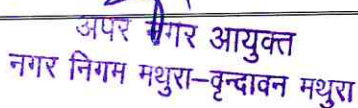 अपर नगर आयुक्त
नगर निगम मथुरा-वृन्दावन मथुरा